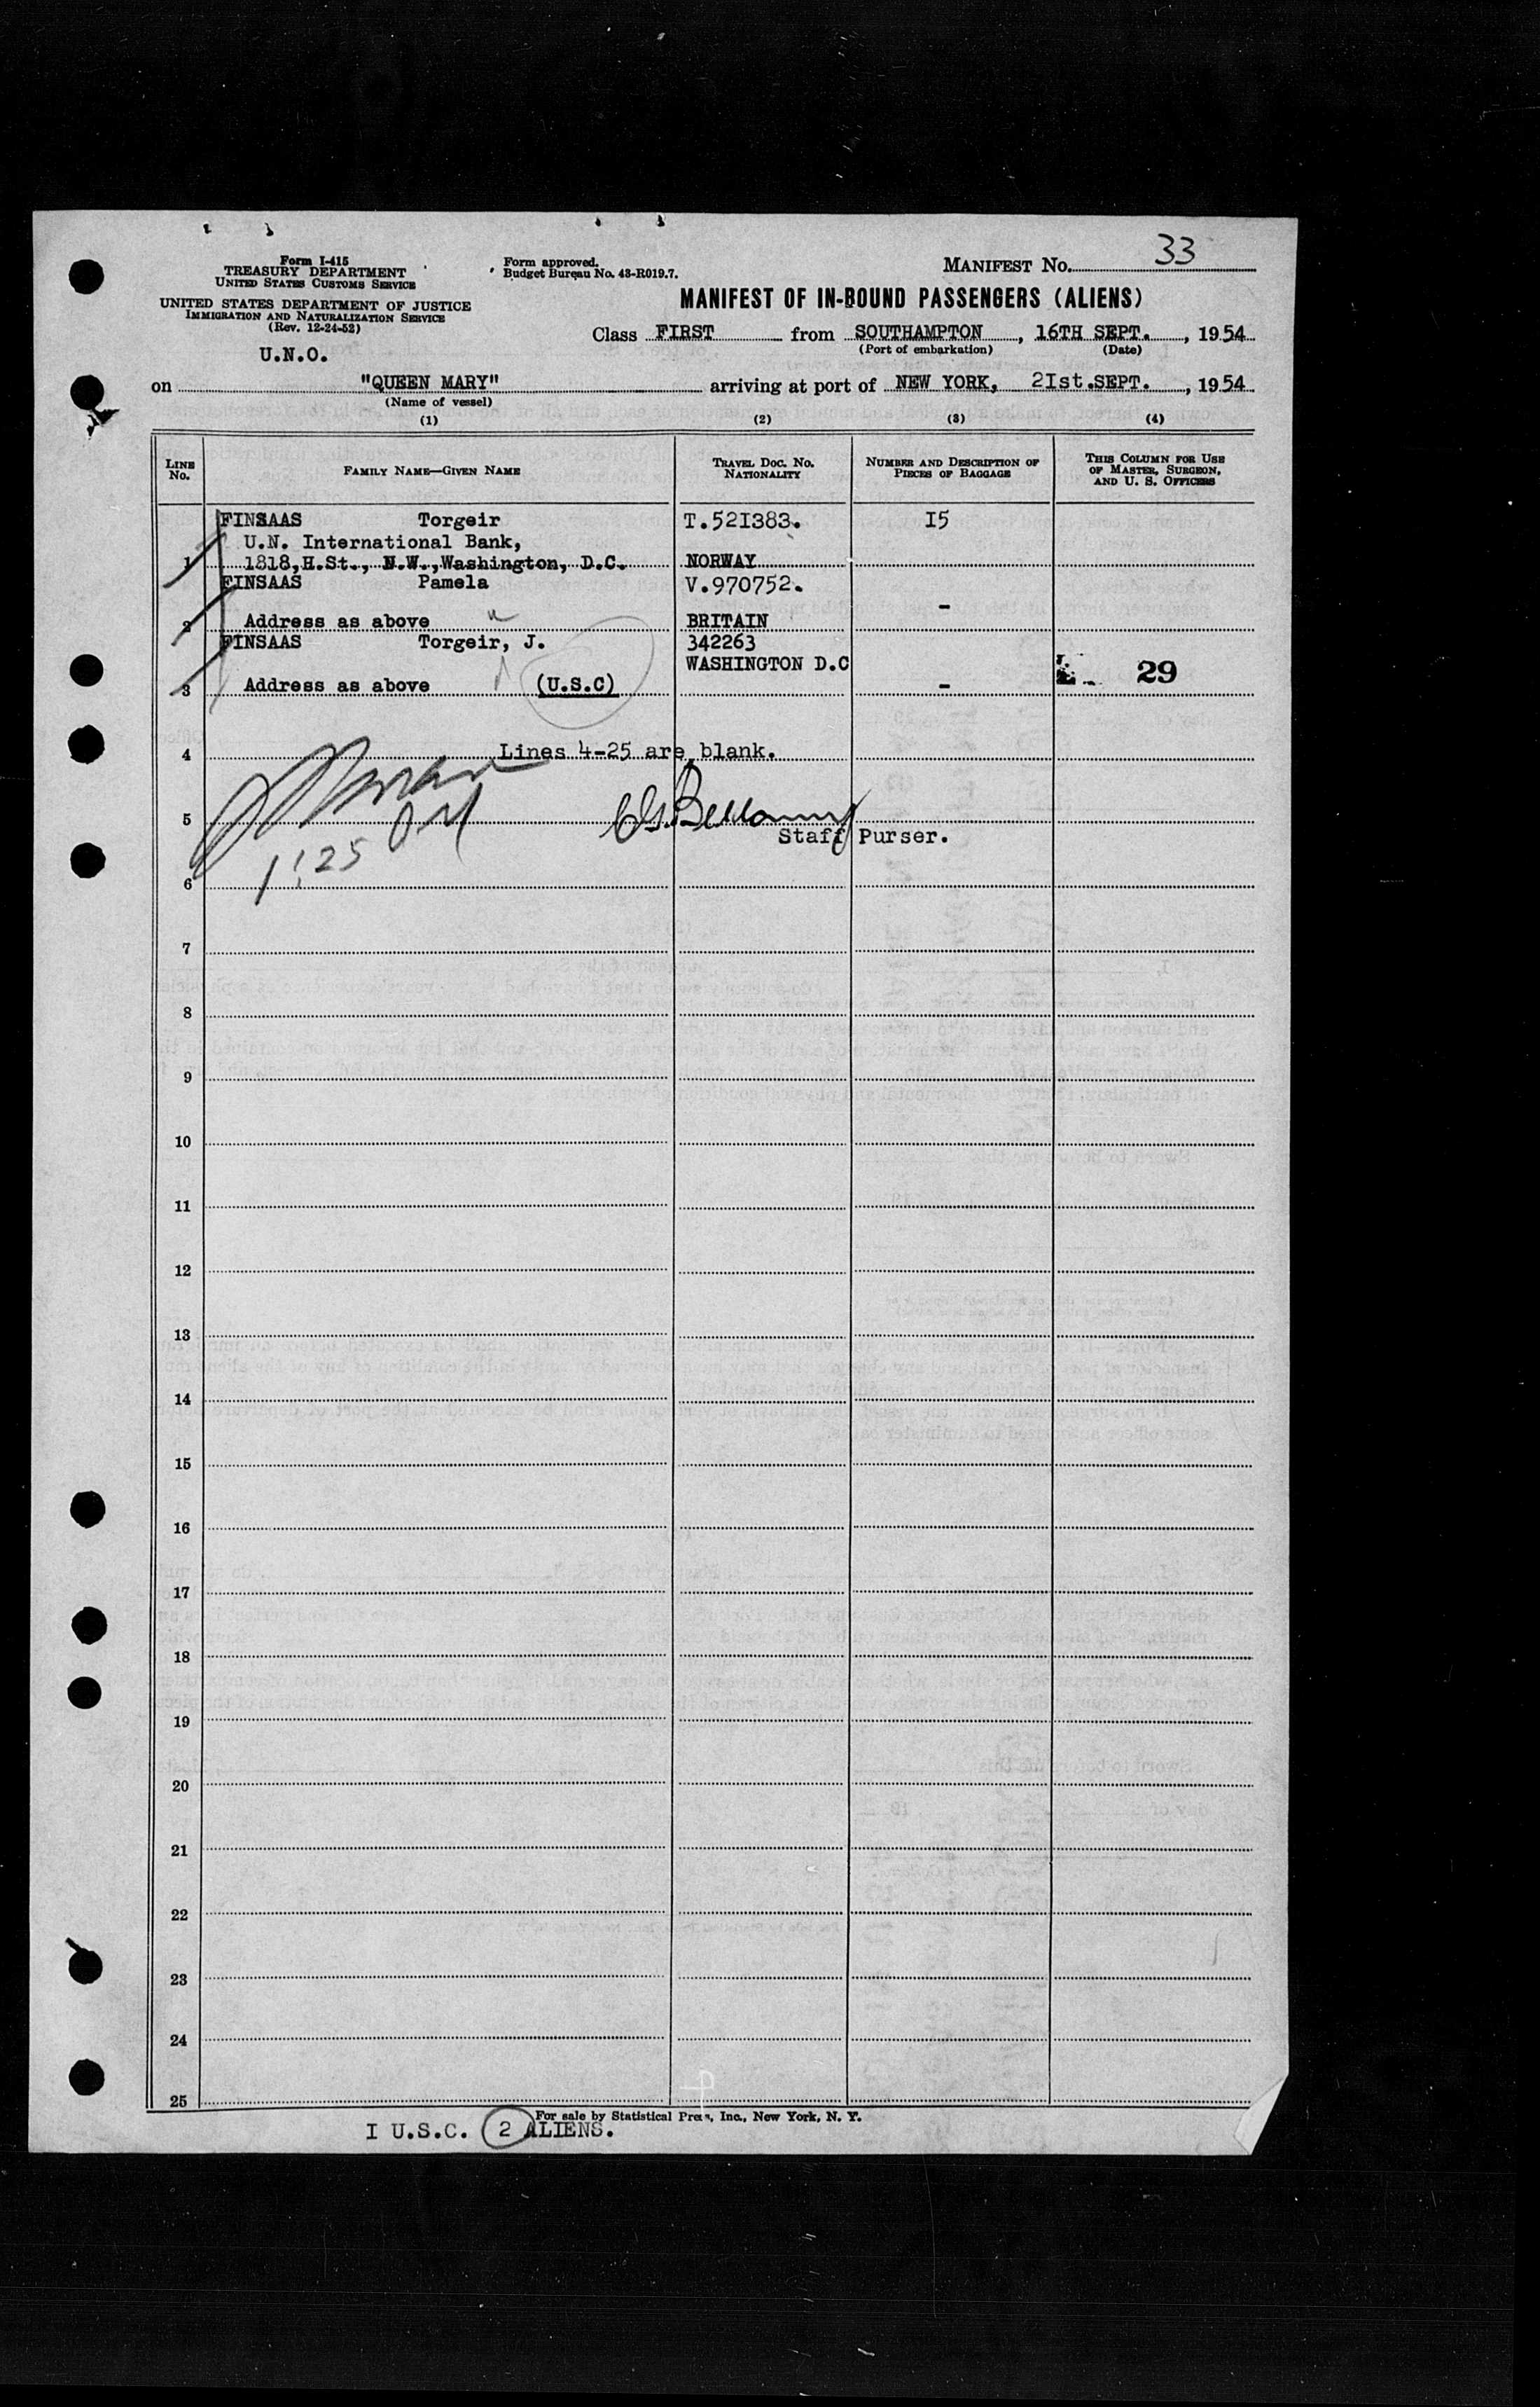 33
Form I-415
TREASURY DEPARTMENT
UNITED STATES CUSTOMS SERVICE
Form approved.
Budget Bureau No. 43-R019.7.
MANIFEST No.
UNITED STATES DEPARTMENT OF JUSTICE
IMMIGRATION AND NATURALIZATION SERVICE
(Rev. 12-24-52)
MANIFEST OF IN-BOUND PASSENGERS (ALIENS)
U.N.O.
Class FIRST from SOUTHAMPTON, 16TH SEPT., 1954
(Port of embarkation) (Date)
on "QUEEN MARY" arriving at port of NEW YORK, 2Ist.SEPT., 1954
(Name of vessel)
(1) (2) (3) (4)
LINE No. FAMILY NAME—GIVEN NAME TRAVEL DOC. NO. NATIONALITY NUMBER AND DESCRIPTION OF PIECES OF BAGGAGE THIS COLUMN FOR USE OF MASTER, SURGEON, AND U. S. OFFICERS
FINSAAS Torgeir T.52I383. I5
U.N. International Bank,
1 1818,H.St., N.W.,Washington, D.C. NORWAY
FINSAAS Pamela V.970752.
2 Address as above BRITAIN -
FINSAAS Torgeir, J. 342263
WASHINGTON D.C
3 Address as above (U.S.C) - 29
4 Lines 4-25 are blank.
5
Staff Purser.
1:25
6
7
8
9
10
11
12
13
14
15
16
17
18
19
20
21
22
23
24
25
For sale by Statistical Press, Inc., New York, N. Y.
I U.S.C. 2 ALIENS.